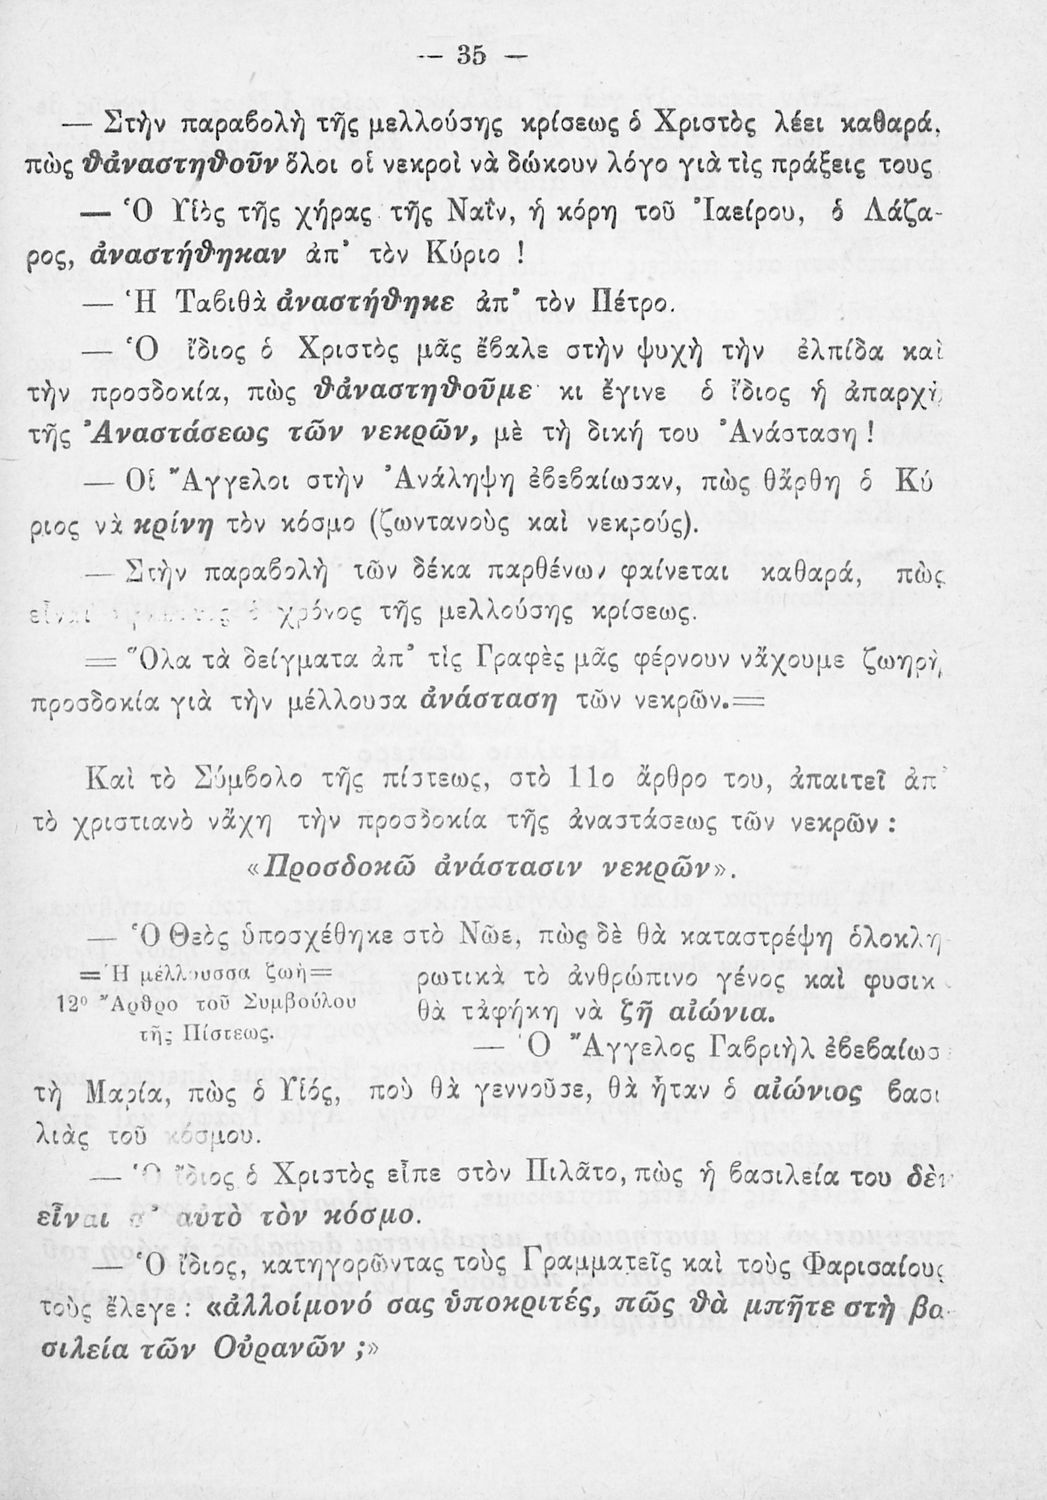 — 35 —
— Στὴν παραβολὴ τῆς μελλούσης κρίσεως ὁ Χριστὸς λέει καθαρά,
πὼς θἀναστηθοῦν ὅλοι οἱ νεκροὶ νὰ δώκουν λόγο γιὰ τὶς πράξεις τους
— Ὁ Υἱὸς τῆς χήρας τῆς Ναΐν, ἡ κόρη τοῦ Ἰαείρου, ὁ Λάζα-
ρος, ἀναστήθηκαν ἀπ’ τὸν Κύριο !
— Ἡ Ταβιθὰ ἀναστήθηκε ἀπ’ τὸν Πέτρο.
— Ὁ ἴδιος ὁ Χριστὸς μᾶς ἔβαλε στὴν ψυχὴ τὴν ἐλπίδα καὶ
τὴν προσδοκία, πὼς θἀναστηθοῦμε κι ἔγινε ὁ ἴδιος ἡ ἀπαρχὴ
τῆς Ἀναστάσεως τῶν νεκρῶν, μὲ τὴ δική του Ἀνάσταση !
— Οἱ Ἄγγελοι στὴν Ἀνάληψη ἐβεβαίωσαν, πὼς θἄρθη ὁ Κύ
ριος νὰ κρίνη τὸν κόσμο (ζωντανοὺς καὶ νεκρούς).
— Στὴν παραβολὴ τῶν δέκα παρθένων φαίνεται καθαρά, πὼς
εἶναι ὁ χρόνος τῆς μελλούσης κρίσεως.
= Ὅλα τὰ δείγματα ἀπ’ τὶς Γραφὲς μᾶς φέρνουν νἄχουμε ζωηρὴ
προσδοκία γιὰ τὴν μέλλουσα ἀνάσταση τῶν νεκρῶν.=
Καὶ τὸ Σύμβολο τῆς πίστεως, στὸ 11ο ἄρθρο του, ἀπαιτεῖ ἀπ’
τὸ χριστιανὸ νἄχη τὴν προσδοκία τῆς ἀναστάσεως τῶν νεκρῶν :
«Προσδοκῶ ἀνάστασιν νεκρῶν».
— Ὁ Θεὸς ὑποσχέθηκε στὸ Νῶε, πὼς δὲ θὰ καταστρέψη ὁλοκλη
=Ἡ μέλλουσσα ζωὴ=
12ο Ἄρθρο τοῦ Συμβούλου
τῆς Πίστεως.
ρωτικὰ τὸ ἀνθρώπινο γένος καὶ φυσικ
θὰ τἀφήκη νὰ ζῆ αἰώνια.
— Ὁ Ἄγγελος Γαβριὴλ ἐβεβαίωσ
τὴ Μαρία, πὼς ὁ Υἱός, ποὺ θὰ γεννοῦσε, θὰ ἦταν ὁ αἰώνιος βασι
λιὰς τοῦ κόσμου.
— Ὁ ἴδιος ὁ Χριστὸς εἶπε στὸν Πιλᾶτο, πὼς ἡ βασιλεία του δὲν
εἶναι σ’ αὐτὸ τὸν κόσμο.
— Ὁ ἴδιος, κατηγορῶντας τοὺς Γραμματεῖς καὶ τοὺς Φαρισαίους
τοὺς ἔλεγε : «ἀλλοίμονό σας ὑποκριτές, πῶς θὰ μπῆτε στὴ βα-
σιλεία τῶν Οὐρανῶν ;»